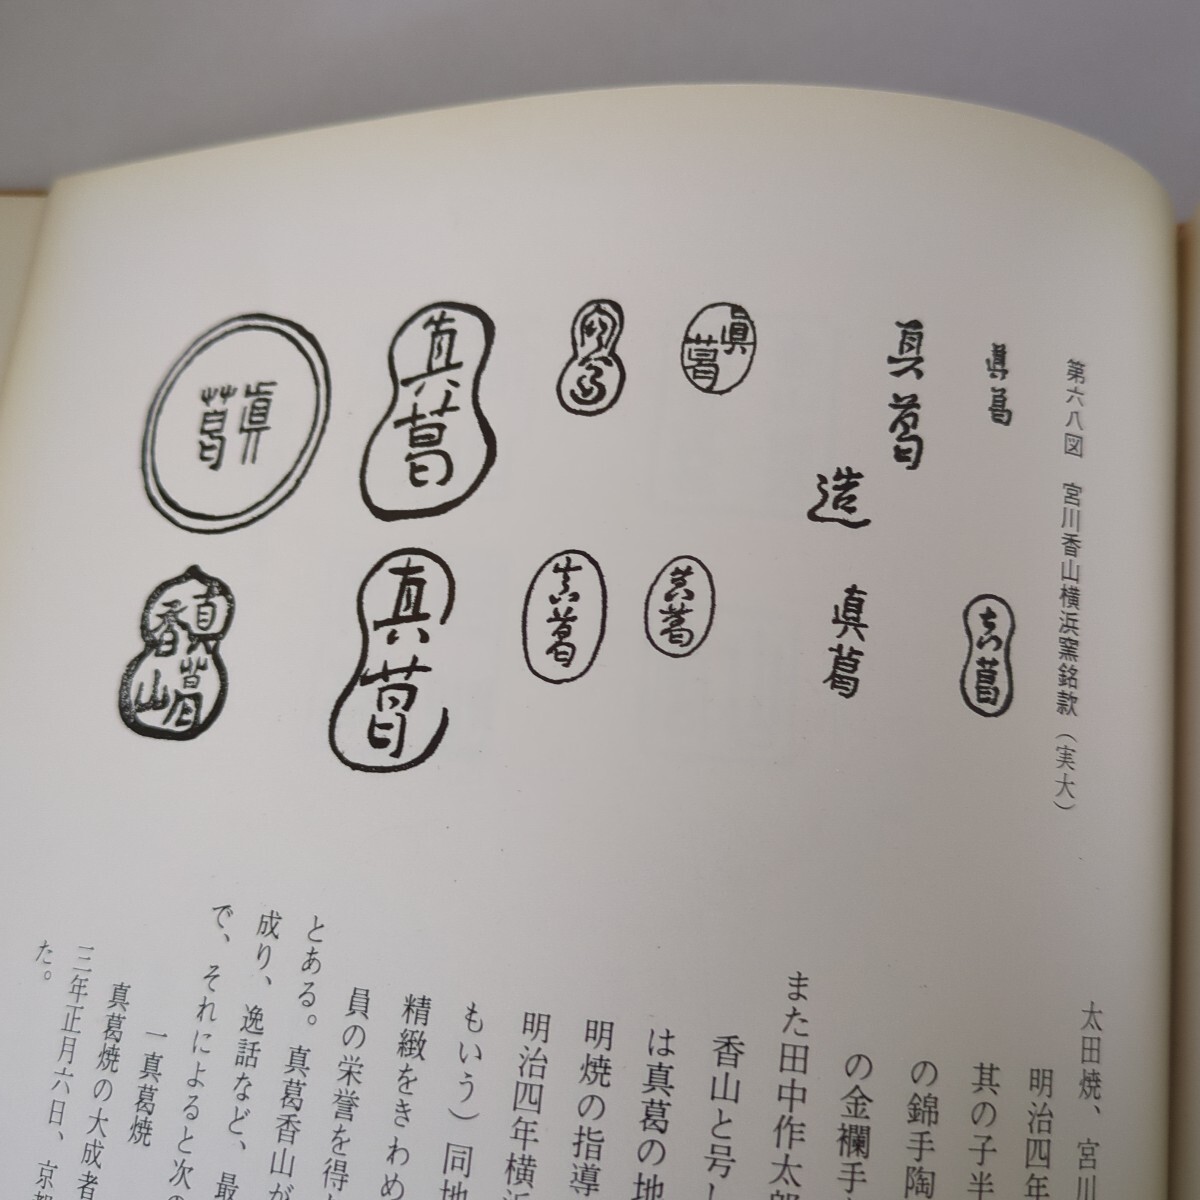 第六八図　宮川香山横浜窯銘款（実大）
眞葛
真葛
真葛
造
眞葛
眞葛
真葛
真葛
真葛
真葛
眞葛
真葛
香山
太田焼、宮川
明治四年
其の子半
の錦手陶
の金襴手
また田中作太郎
香山と号し
は真葛の地
明焼の指導
明治四年横浜
もいう）同地
精緻をきわめ
員の栄誉を得
とある。真葛香山が
成り、逸話など、最
で、それによると次の
一真葛焼
真葛焼の大成者
三年正月六日、京都
た。